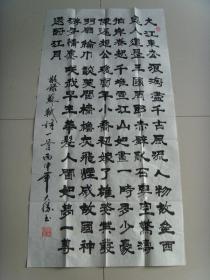 大江東去浪淘盡千古風流人物故壘西
邊人道是三國周郎赤壁亂石穿空驚濤
拍岸卷起千堆雪江山如畫一時多少豪
傑遥想公瑾當年小喬初嫁了雄姿英發
羽扇綸巾談笑間檣櫓灰飛煙滅故國神
遊多情應笑我早生華髮人間如夢一尊
還酹江月
蘇軾詩一首丙申年